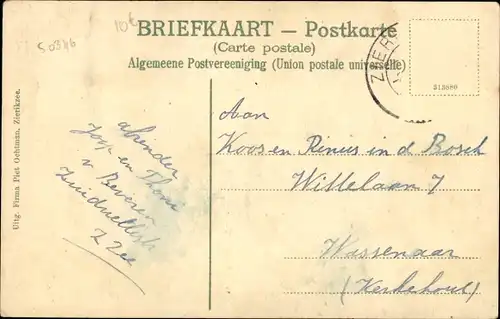 10€
50346
BRIEFKAART – Postkarte
(Carte postale)
Algemeene Postvereeniging (Union postale universelle)
ZIER
313880
Uitg. Firma Piet Ochtman, Zierikzee.
afzender
Jop en Thoni
v Beveren
Z Zee
Aan
Koos en Rinus in d Bosch
Wittelaan 7
Wassenaar
(Kerkehout)